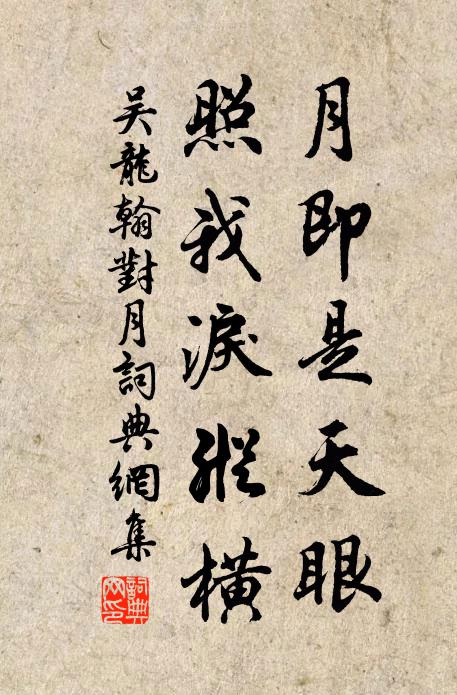 月即是天眼
照我淚縱橫
吳龍翰對月詞典網集